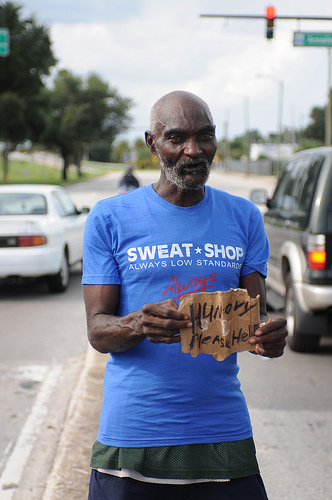 SWEAT★SHOP
ALWAYS LOW STANDARDS
Always
HUNGRY
PLEASE HELP